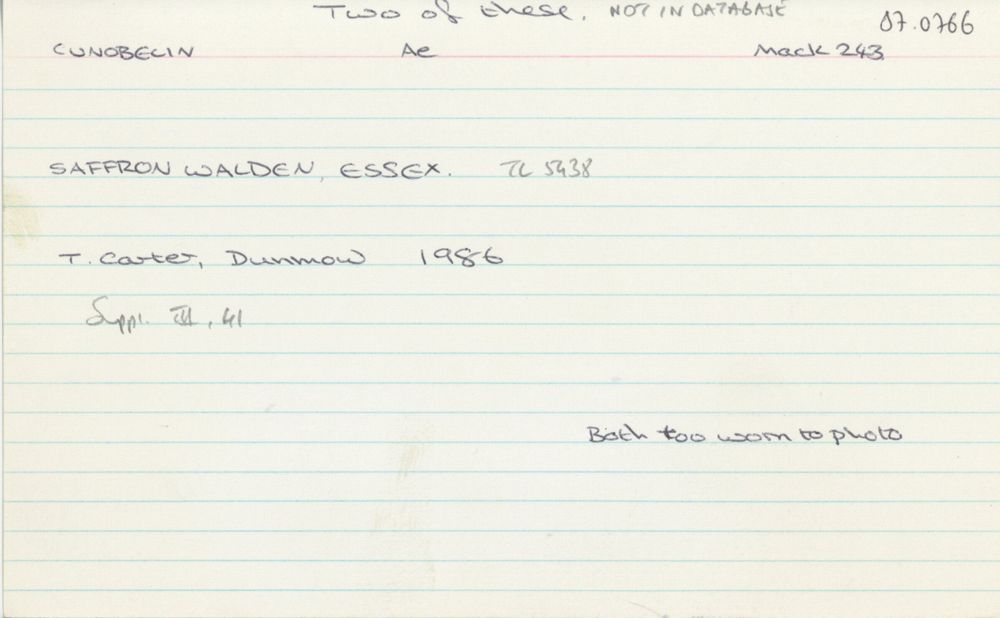 Two of these. NOT IN DATABASE 07.0766
CUNOBELIN Ae Mack 243
SAFFRON WALDEN, ESSEX. TL 5438
T. Carter, Dunmow 1986
Suppl. III, 41
Both too worn to photo